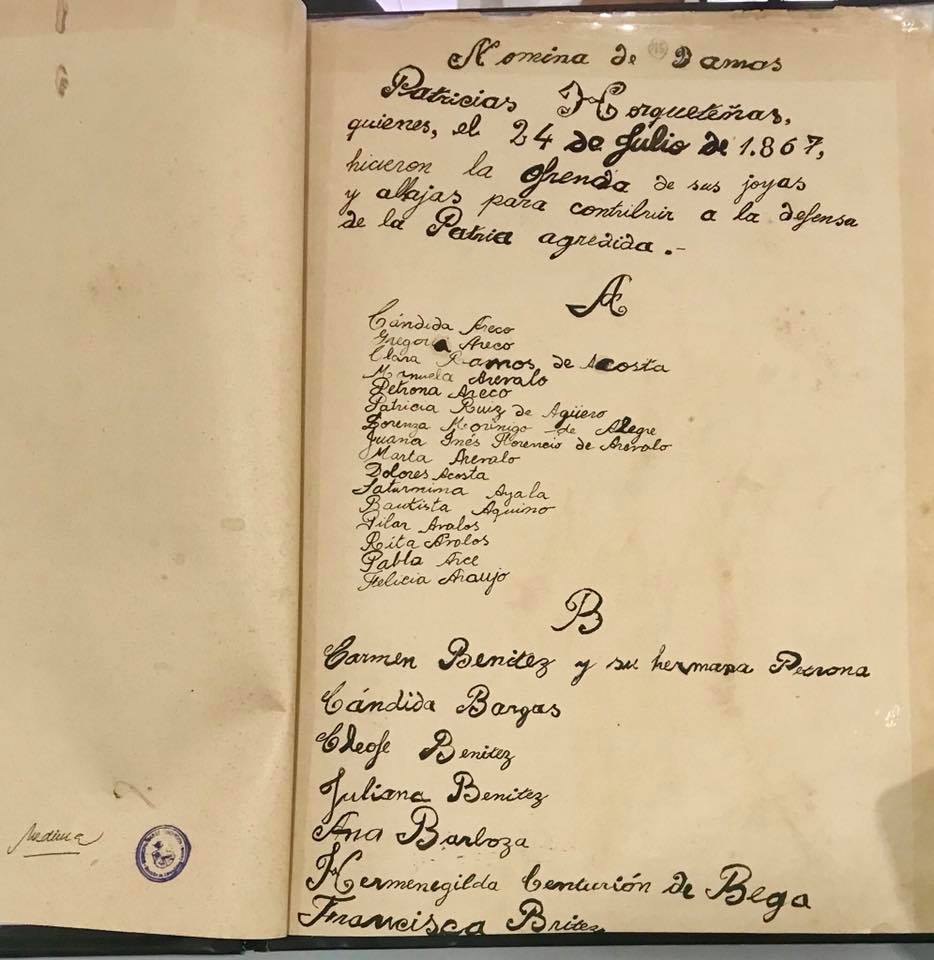 Nomina de Damas
Patricias Horqueteñas,
quienes, el 24 de Julio de 1.867,
hicieron la ofrenda de sus joyas
y alhajas para contribuir a la defensa
de la Patria agredida.-
A
Cándida Areco
Gregoria Areco
Clara Ramos de Acosta
Manuela Arevalo
Petrona Areco
Patricia Ruiz de Agüero
Lorenza Morinigo de Alegre
Juana Inés Florencio de Arevalo
Marta Arevalo
Dolores Acosta
Saturnina Ayala
Bautista Aquino
Pilar Avalos
Rita Avalos
Pabla Arce
Felicia Araujo
B
Carmen Benitez y su hermana Petrona
Cándida Bargas
Cleofe Benitez
Juliana Benitez
Ana Barboza
Hermenegilda Centurión de Bega
Francisca Britez